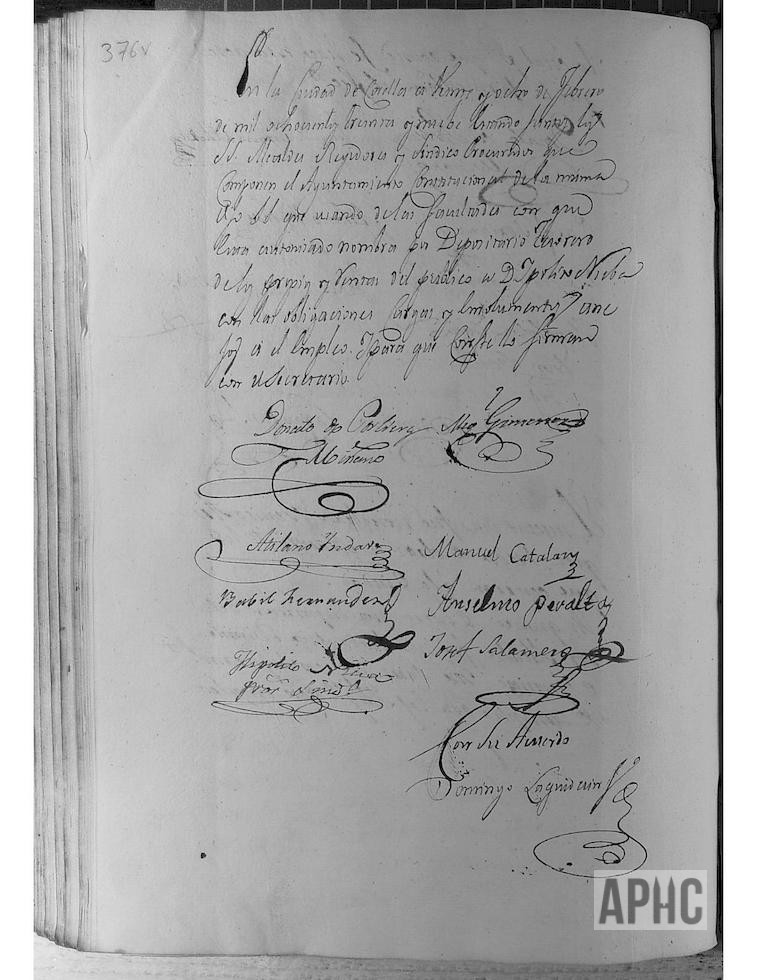 376v
En la Ciudad de Corella a Veinte y ocho de Febrero
de mil ochocientos treinta y nuebe Estando juntos los
SS. Alcaldes Regidores y Sindico Procurador que
componen el Ayuntamiento Constitucional de la misma
que usando de las facultades con que
autorizado nombra por Depositario Tesorero
de los propios y Rentas del público a D. Ipolito Nieba
con las obligaciones Cargas y Emolumentos ane
jos a el Empleo. Y para que Conste lo firman
con el Secretario
Donato de
Miñano
Gimenez
Atilano Yndar
Manuel Catalan
Babil Fernandez
Anselmo Peralta
Hipolito
Josef Salamero
Con su Acuerdo
Domingo
APHC